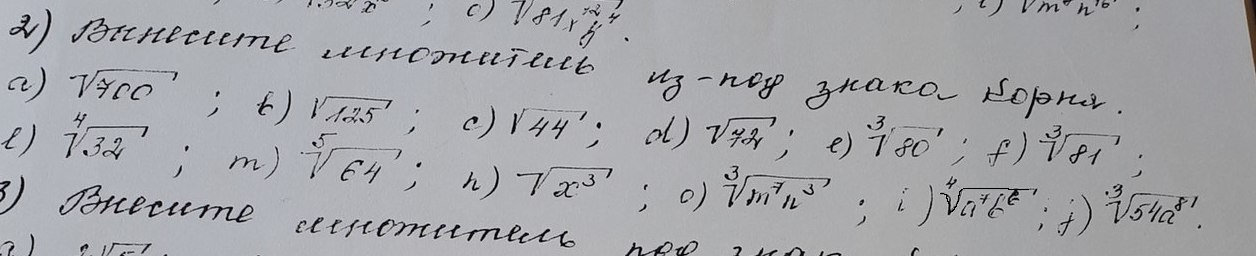 c) ∜81x¹²y⁴
2) Винесите множитель из-под знака корня.
a) √700 ; b) √125 ; c) √44 ; d) √72 ; e) ∛80 ; f) ∛81 ;
l) ∜32 ; m) ⁵√64 ; n) √x³ ; o) ∛m⁷n³ ; i) ∜a⁷b⁶ ; j) ∛54a⁸ .
3) Внесите множитель под знак